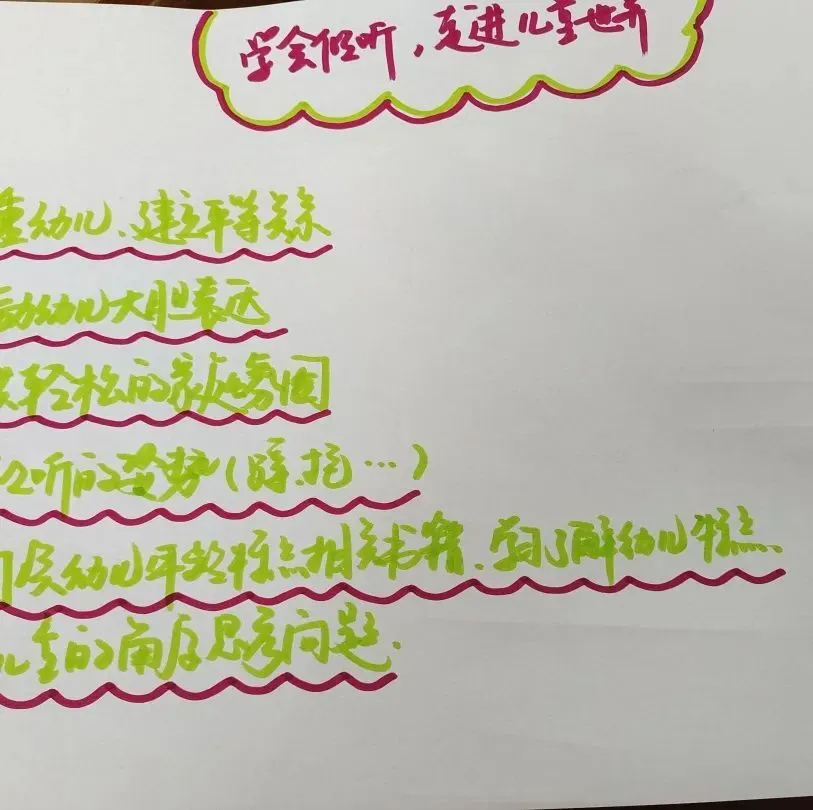 学会倾听，走进儿童世界
重幼儿、建立平等关系
动幼儿大胆表达
轻松的家庭氛围
听的姿势（蹲、抱…）
幼儿年龄特点相关书籍、学习了解幼儿特点、
儿童的角度思考问题.